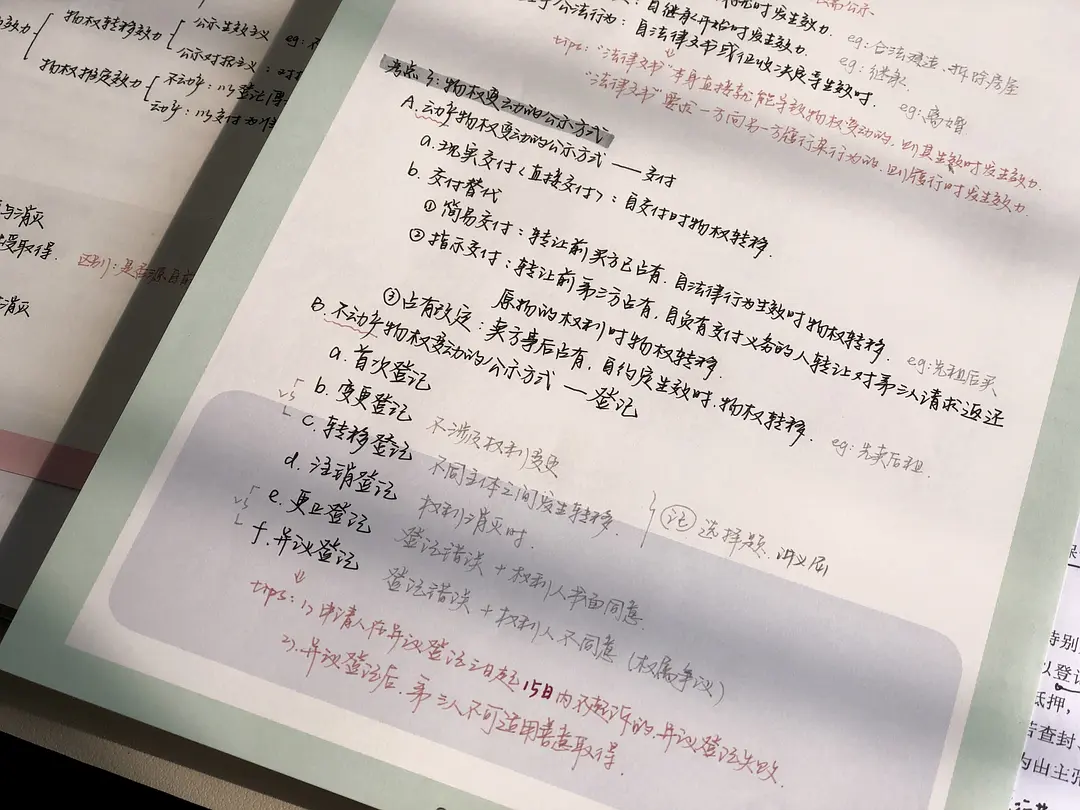 物权转移效力
公示生效主义
eg:
公示对抗主义:
物权推定效力
不动产:以登记
动产:以交付为
与消灭
受取得.
区别:是否源自前
消灭
发生效力
自继承开始时发生效力.
eg:合法建造、拆除房屋
公法行为:自法律文书或征收决定等生效时.
eg:继承
eg:离婚
tips:"法律文书"本身直接就能导致物权变动的,则其生效时发生效力.
"法律文书"要求一方向另一方履行某行为的,则履行时发生效力.
考点3:物权变动的公示方式
A.动产物权变动的公示方式——交付
a.现实交付(直接交付):自交付时物权转移.
b.交付替代
①简易交付:转让前买方已占有,自法律行为生效时物权转移.
eg:先租后买
②指示交付:转让前第三方占有,自负有交付义务的人转让对第三人请求返还
原物的权利时物权转移.
③占有改定:卖方事后占有,自约定生效时,物权转移.
eg:先卖后租.
B.不动产物权变动的公示方式——登记
a.首次登记
b.变更登记 不涉及权利变更
c.转移登记 不同主体之间发生转移.
vs
d.注销登记 权利消灭时.
e.更正登记 登记错误+权利人书面同意.
f.异议登记 登记错误+权利人不同意(权属争议)
vs
记 选择题.
tips:1)申请人在异议登记之日起15日内不起诉的,异议登记失效.
2)异议登记后,第三人不可适用善意取得.
特别
以登记
抵押,
查封、
为由主张